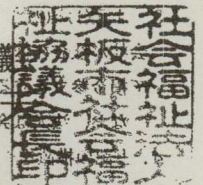 社会福祉法人
矢板市社会福
祉協議会長印